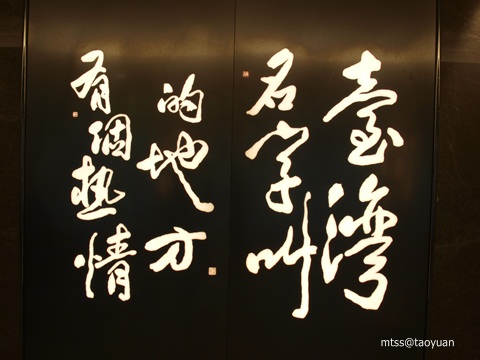 有個熱情
的地方
名字叫
臺灣
mtss@taoyuan